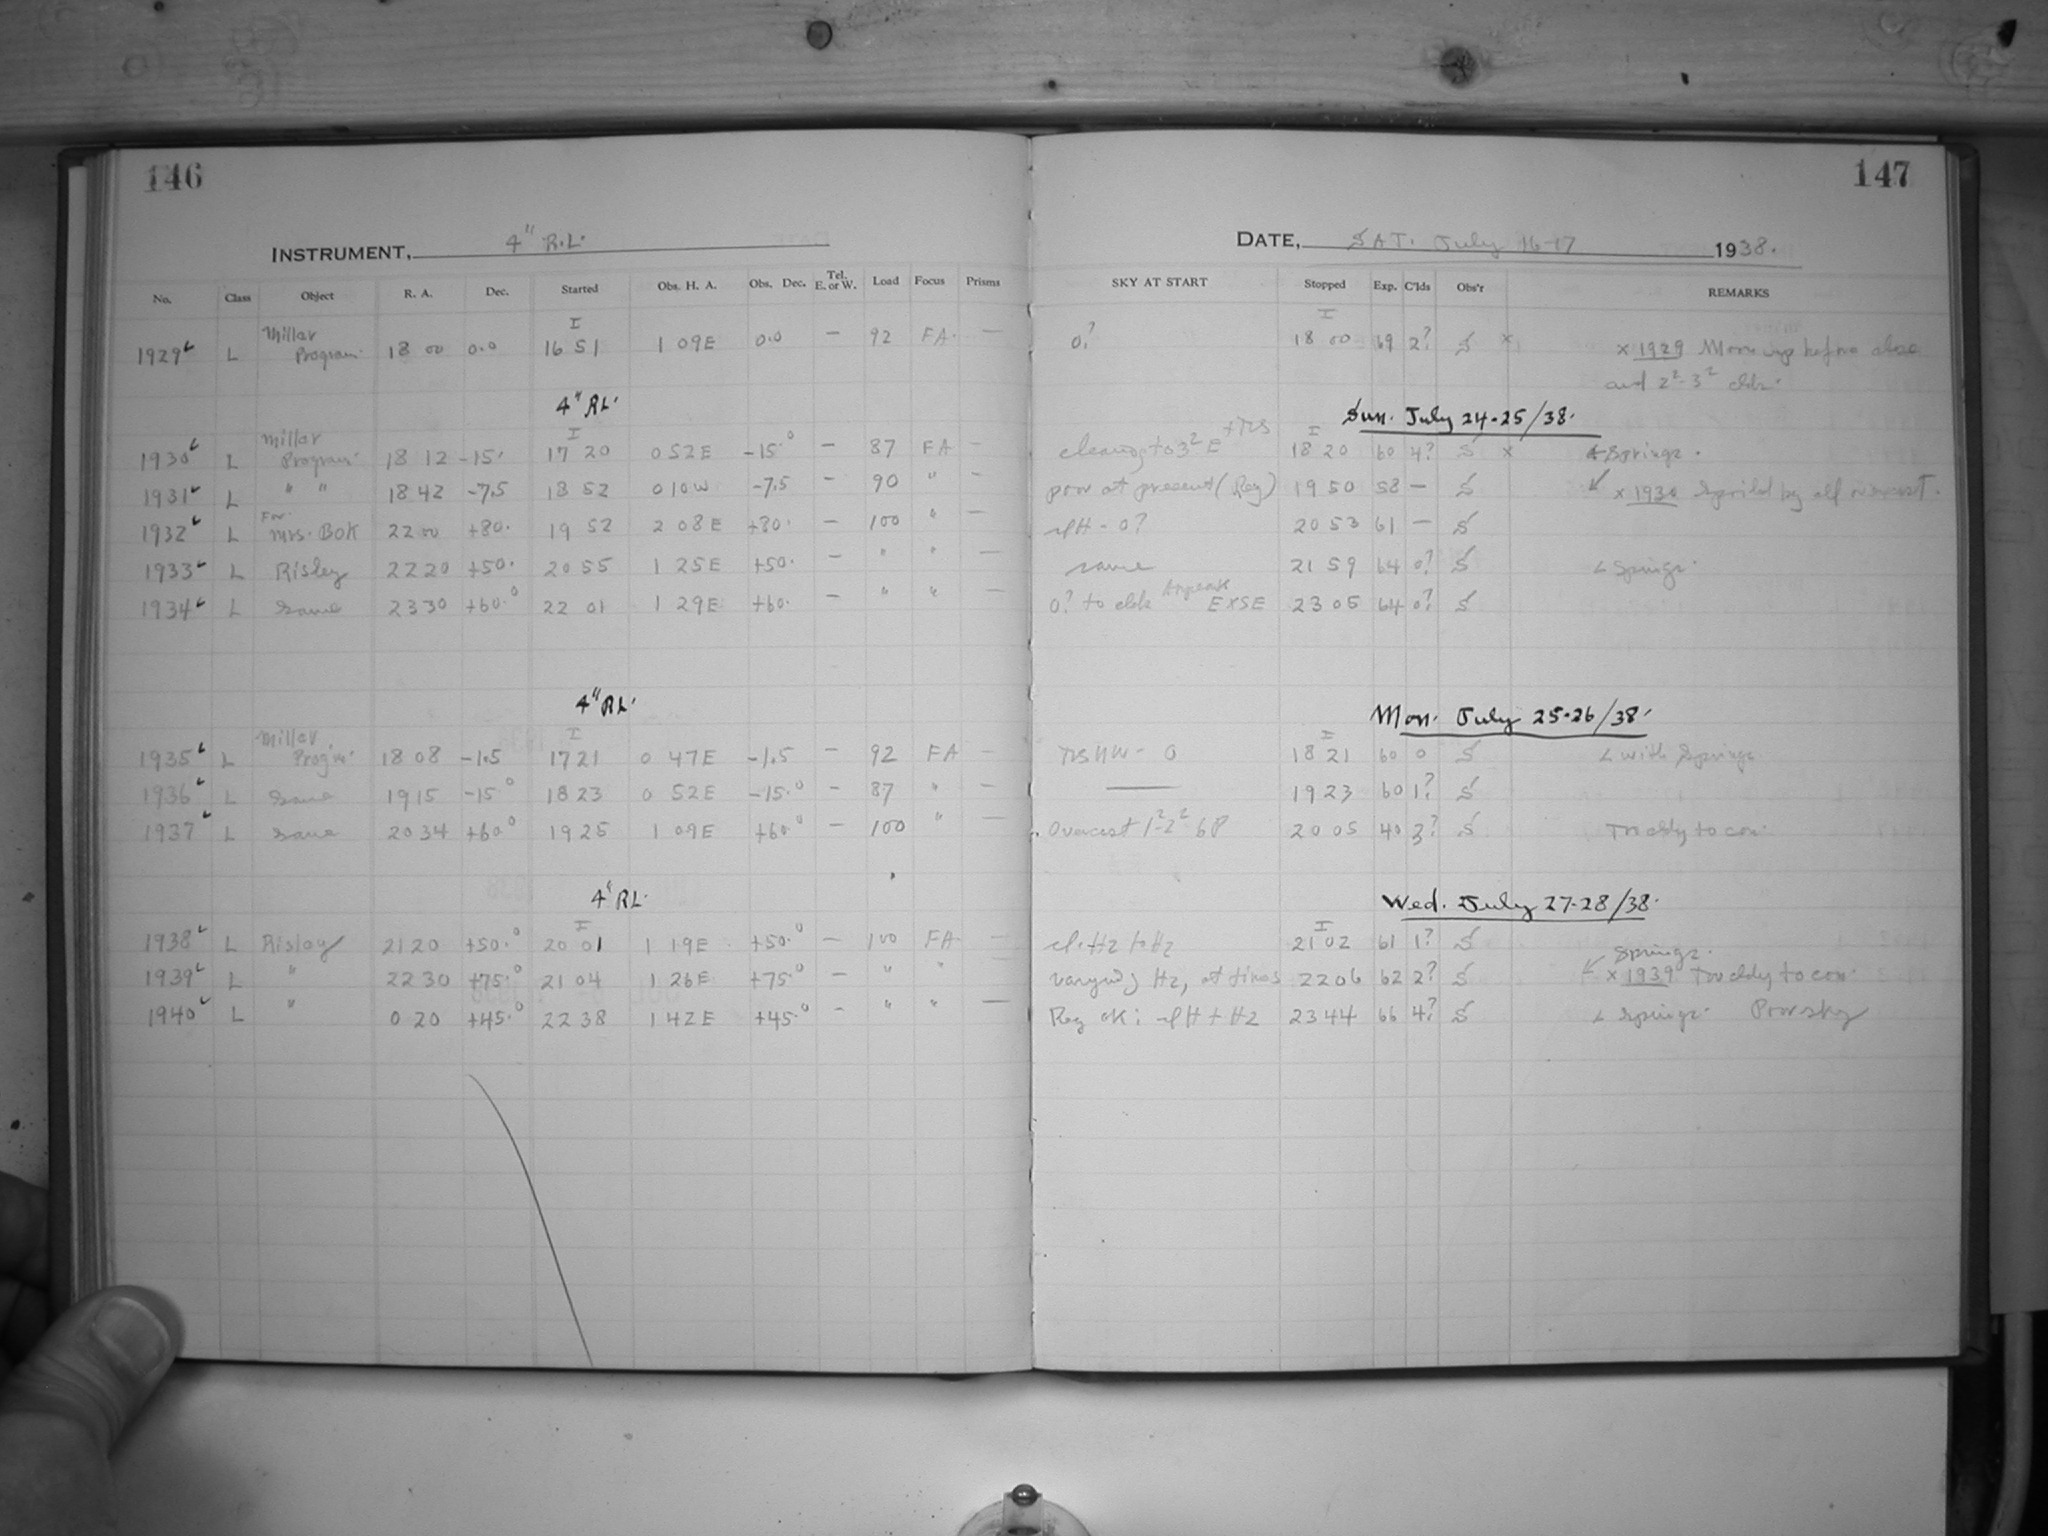 146
147
INSTRUMENT, 4" R.L.
DATE, SAT. July 16-17 1938.
No. Class Object R. A. Dec. Started Obs. H. A. Obs. Dec. Tel. E. or W. Load Focus Prisms SKY AT START Stopped Exp. C'lds Obs'r REMARKS
I I
1929 L Millar Program 18 00 0.0 16 51 1 09E 0.0 — 92 FA. — 0? 18 00 69 2? S x x 1929 Moon up before close
and 2²-3² clds.
4" RL. Sun. July 24-25/38.
I I
1930 L Millar Program 18 12 -15. 17 20 0 52E -15.° — 87 FA — clearing to 3² E 18 20 60 4? S x Springs.
1931 L " " 18 42 -7.5 18 52 0 10W -7.5 — 90 " — poor at present (Reg) 19 50 58 — S x 1930 Spoild by
1932 L For Mrs. BOK 22 00 +80. 19 52 2 08E +80. — 100 " — 0? 20 53 61 — S
1933 L Risley 22 20 +50. 20 55 1 25E +50. — " " — same 21 59 64 0? S Springs.
1934 L Same 23 30 +60.° 22 01 1 29E +60. — " " — 0? to clds EXSE 23 05 64 0? S
4" RL. Mon. July 25-26/38.
I I
1935 L Millar Prog'm. 18 08 -1.5 17 21 0 47E -1.5 — 92 FA — NW - 0 18 21 60 0 S with Springs
1936 L Same 19 15 -15.° 18 23 0 52E -15.° — 87 " — —— 19 23 60 1? S
1937 L Same 20 34 +60.° 19 25 1 09E +60.° — 100 " — Overcast 1²-2² 20 05 40 3? S Too cldy to con.
4" RL. Wed. July 27-28/38.
I I
1938 L Risley 21 20 +50.° 20 01 1 19E +50.° — 100 FA — Hz 21 02 61 1? S Springs.
1939 L " 22 30 +75.° 21 04 1 26E +75.° — " " varying Hz, at times 22 06 62 2? S x 1939 Too cldy to con.
1940 L " 0 20 +45.° 22 38 1 42E +45.° — " " — Reg OK: + Hz 23 44 66 4? S Springs. Poor sky